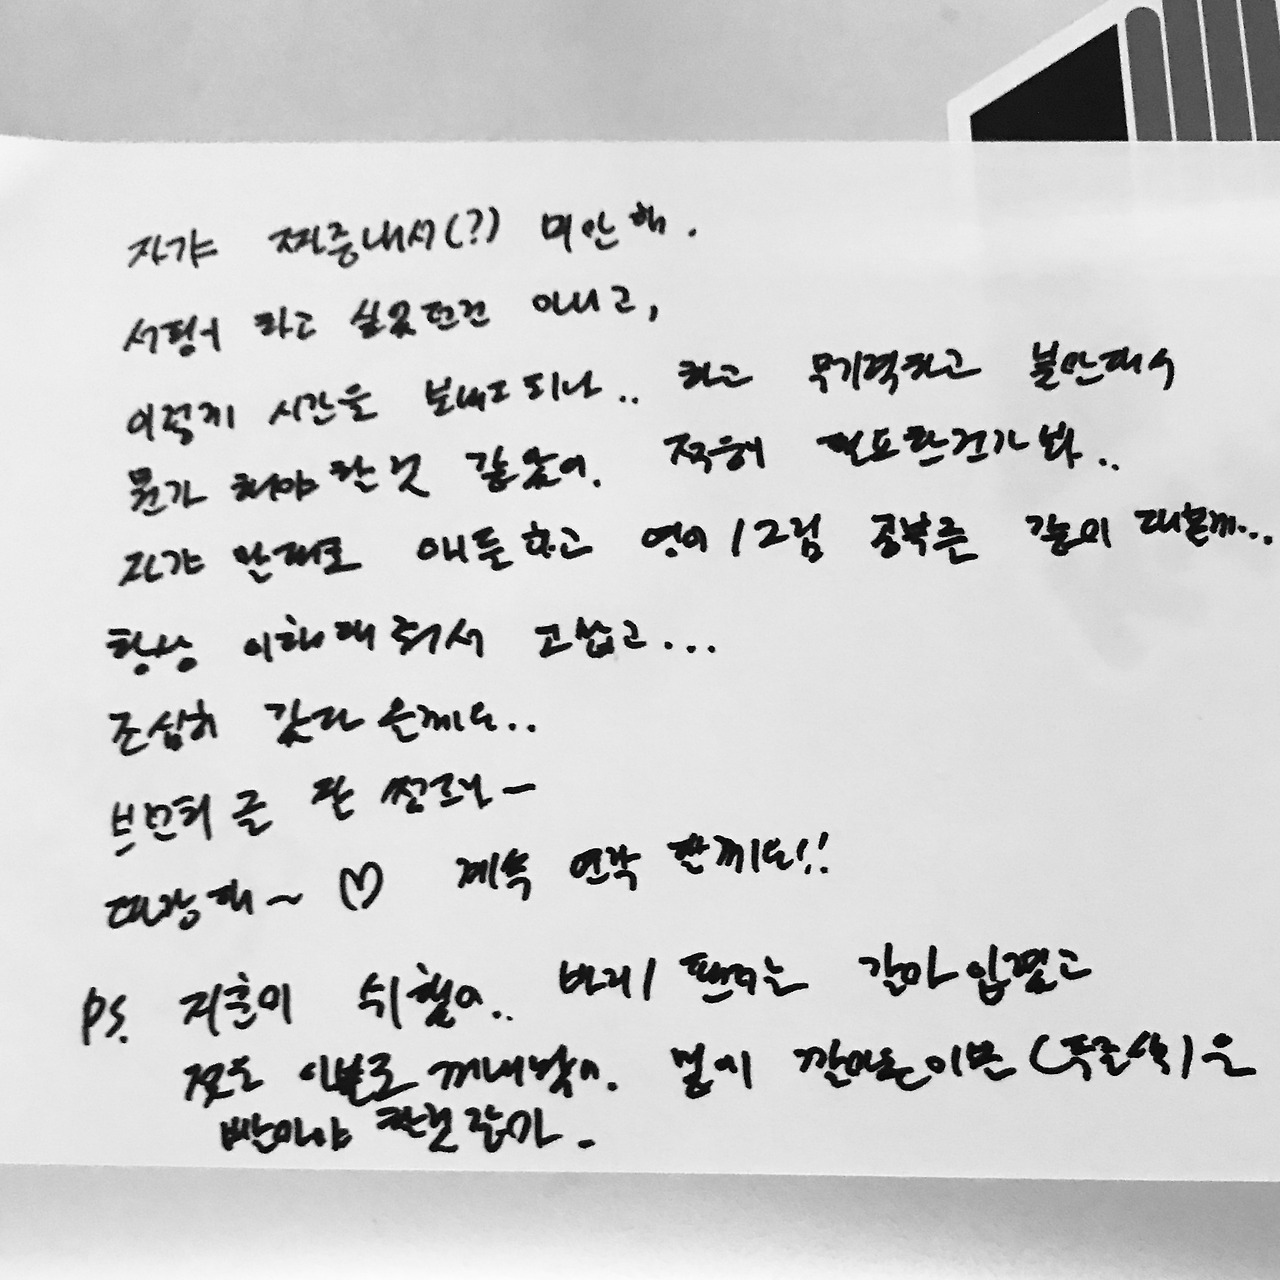 자갸 짜증내서(?) 미안해.
서평이 하고 싶었던건 아니고,
이렇게 시간을 보내도 되나.. 하고 무기력하고 불안해서
뭔가 해야 할 것 같았어. 적응이 필요한건가봐..
자갸 말대로 애들하고 영어/그림 공부를 같이 해볼께...
항상 이해해 줘서 고맙고...
조심히 갔다 올께요..
브런치 글 잘
사랑해~ ♡ 계속 연락 할께요!!
PS. 지훈이 쉬했어.. 바지/팬티는 갈아입혔고
젖은 이불도 꺼내놨어. 밑에 깔아놓은이불(두줄색)은
빨아야 할것같아.